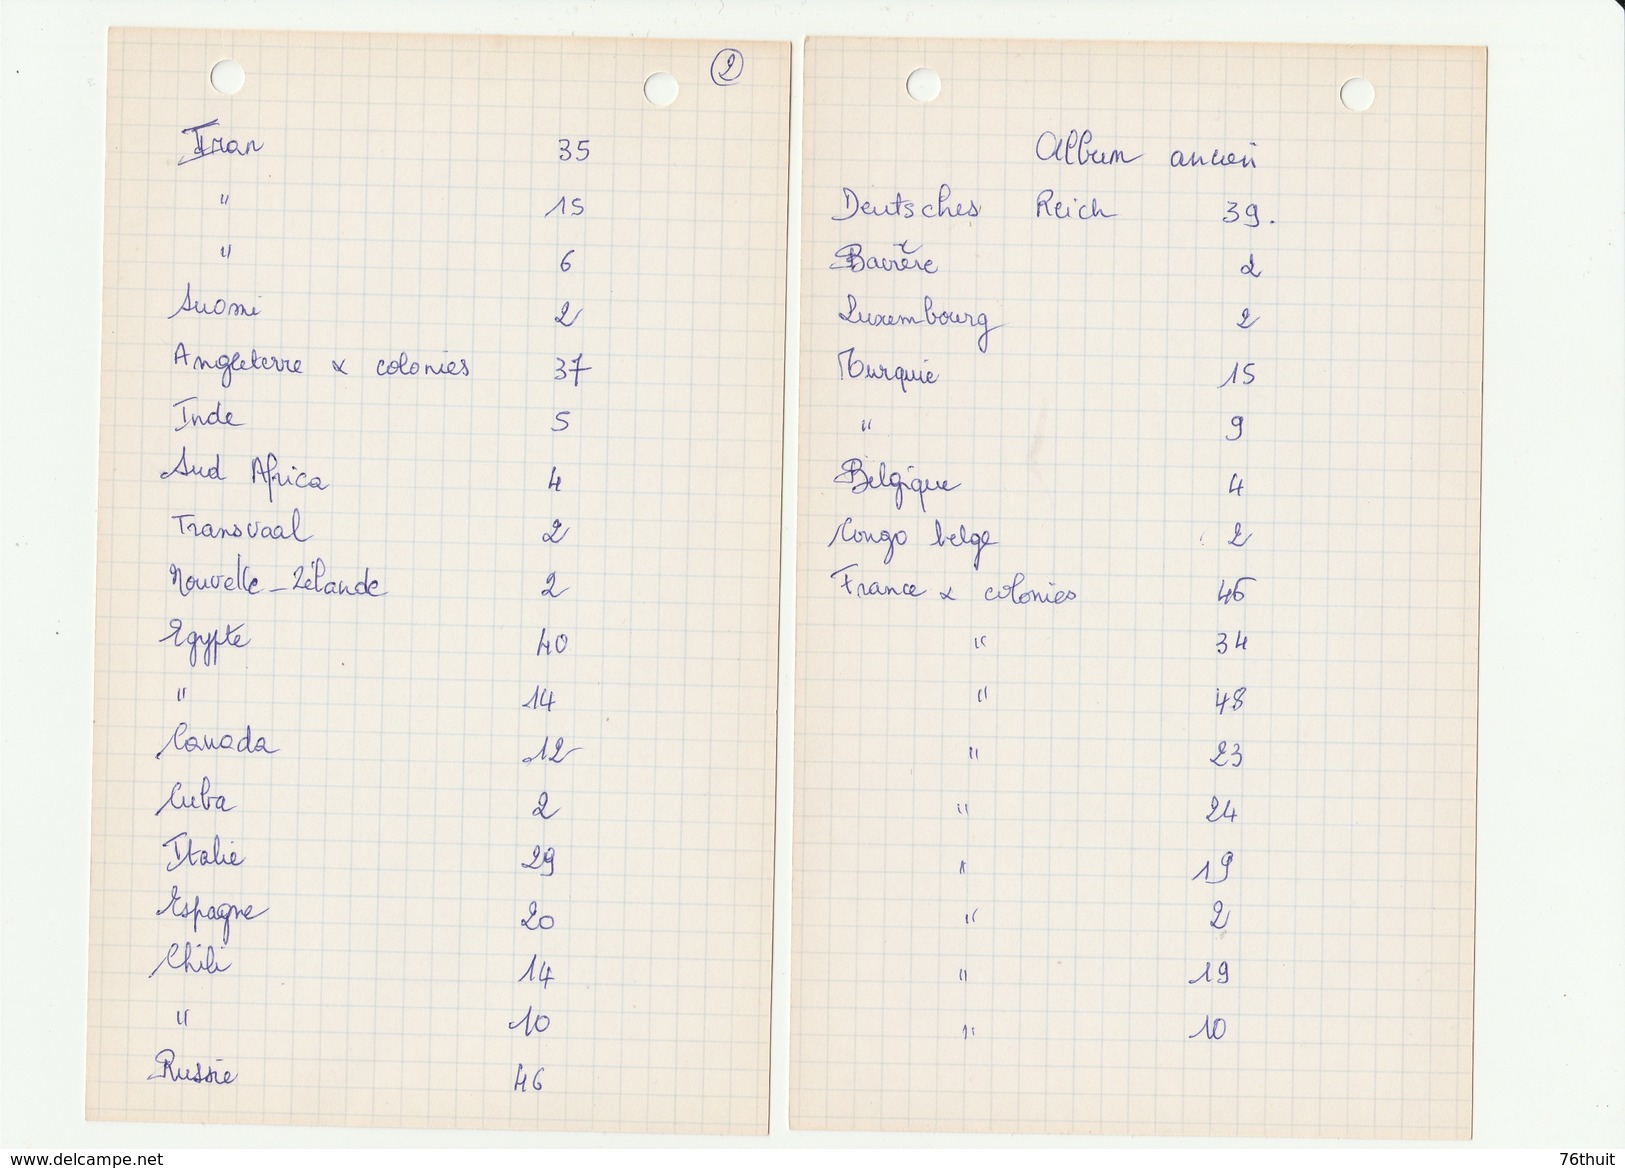 2
Iran 35
" 15
" 6
Suomi 2
Angleterre & colonies 37
Inde 5
Sud Africa 4
Transvaal 2
Nouvelle-Zélande 2
Egypte 40
" 14
Canada 12
Cuba 2
Italie 29
Espagne 20
Chili 14
" 10
Russie 46
Album ancien
Deutsches Reich 39.
Bavière 2
Luxembourg 2
Turquie 15
" 9
Belgique 4
Congo belge 2
France & colonies 46
" 34
" 48
" 23
" 24
" 19
" 2
" 19
" 10
www.delcampe.net
76thuit